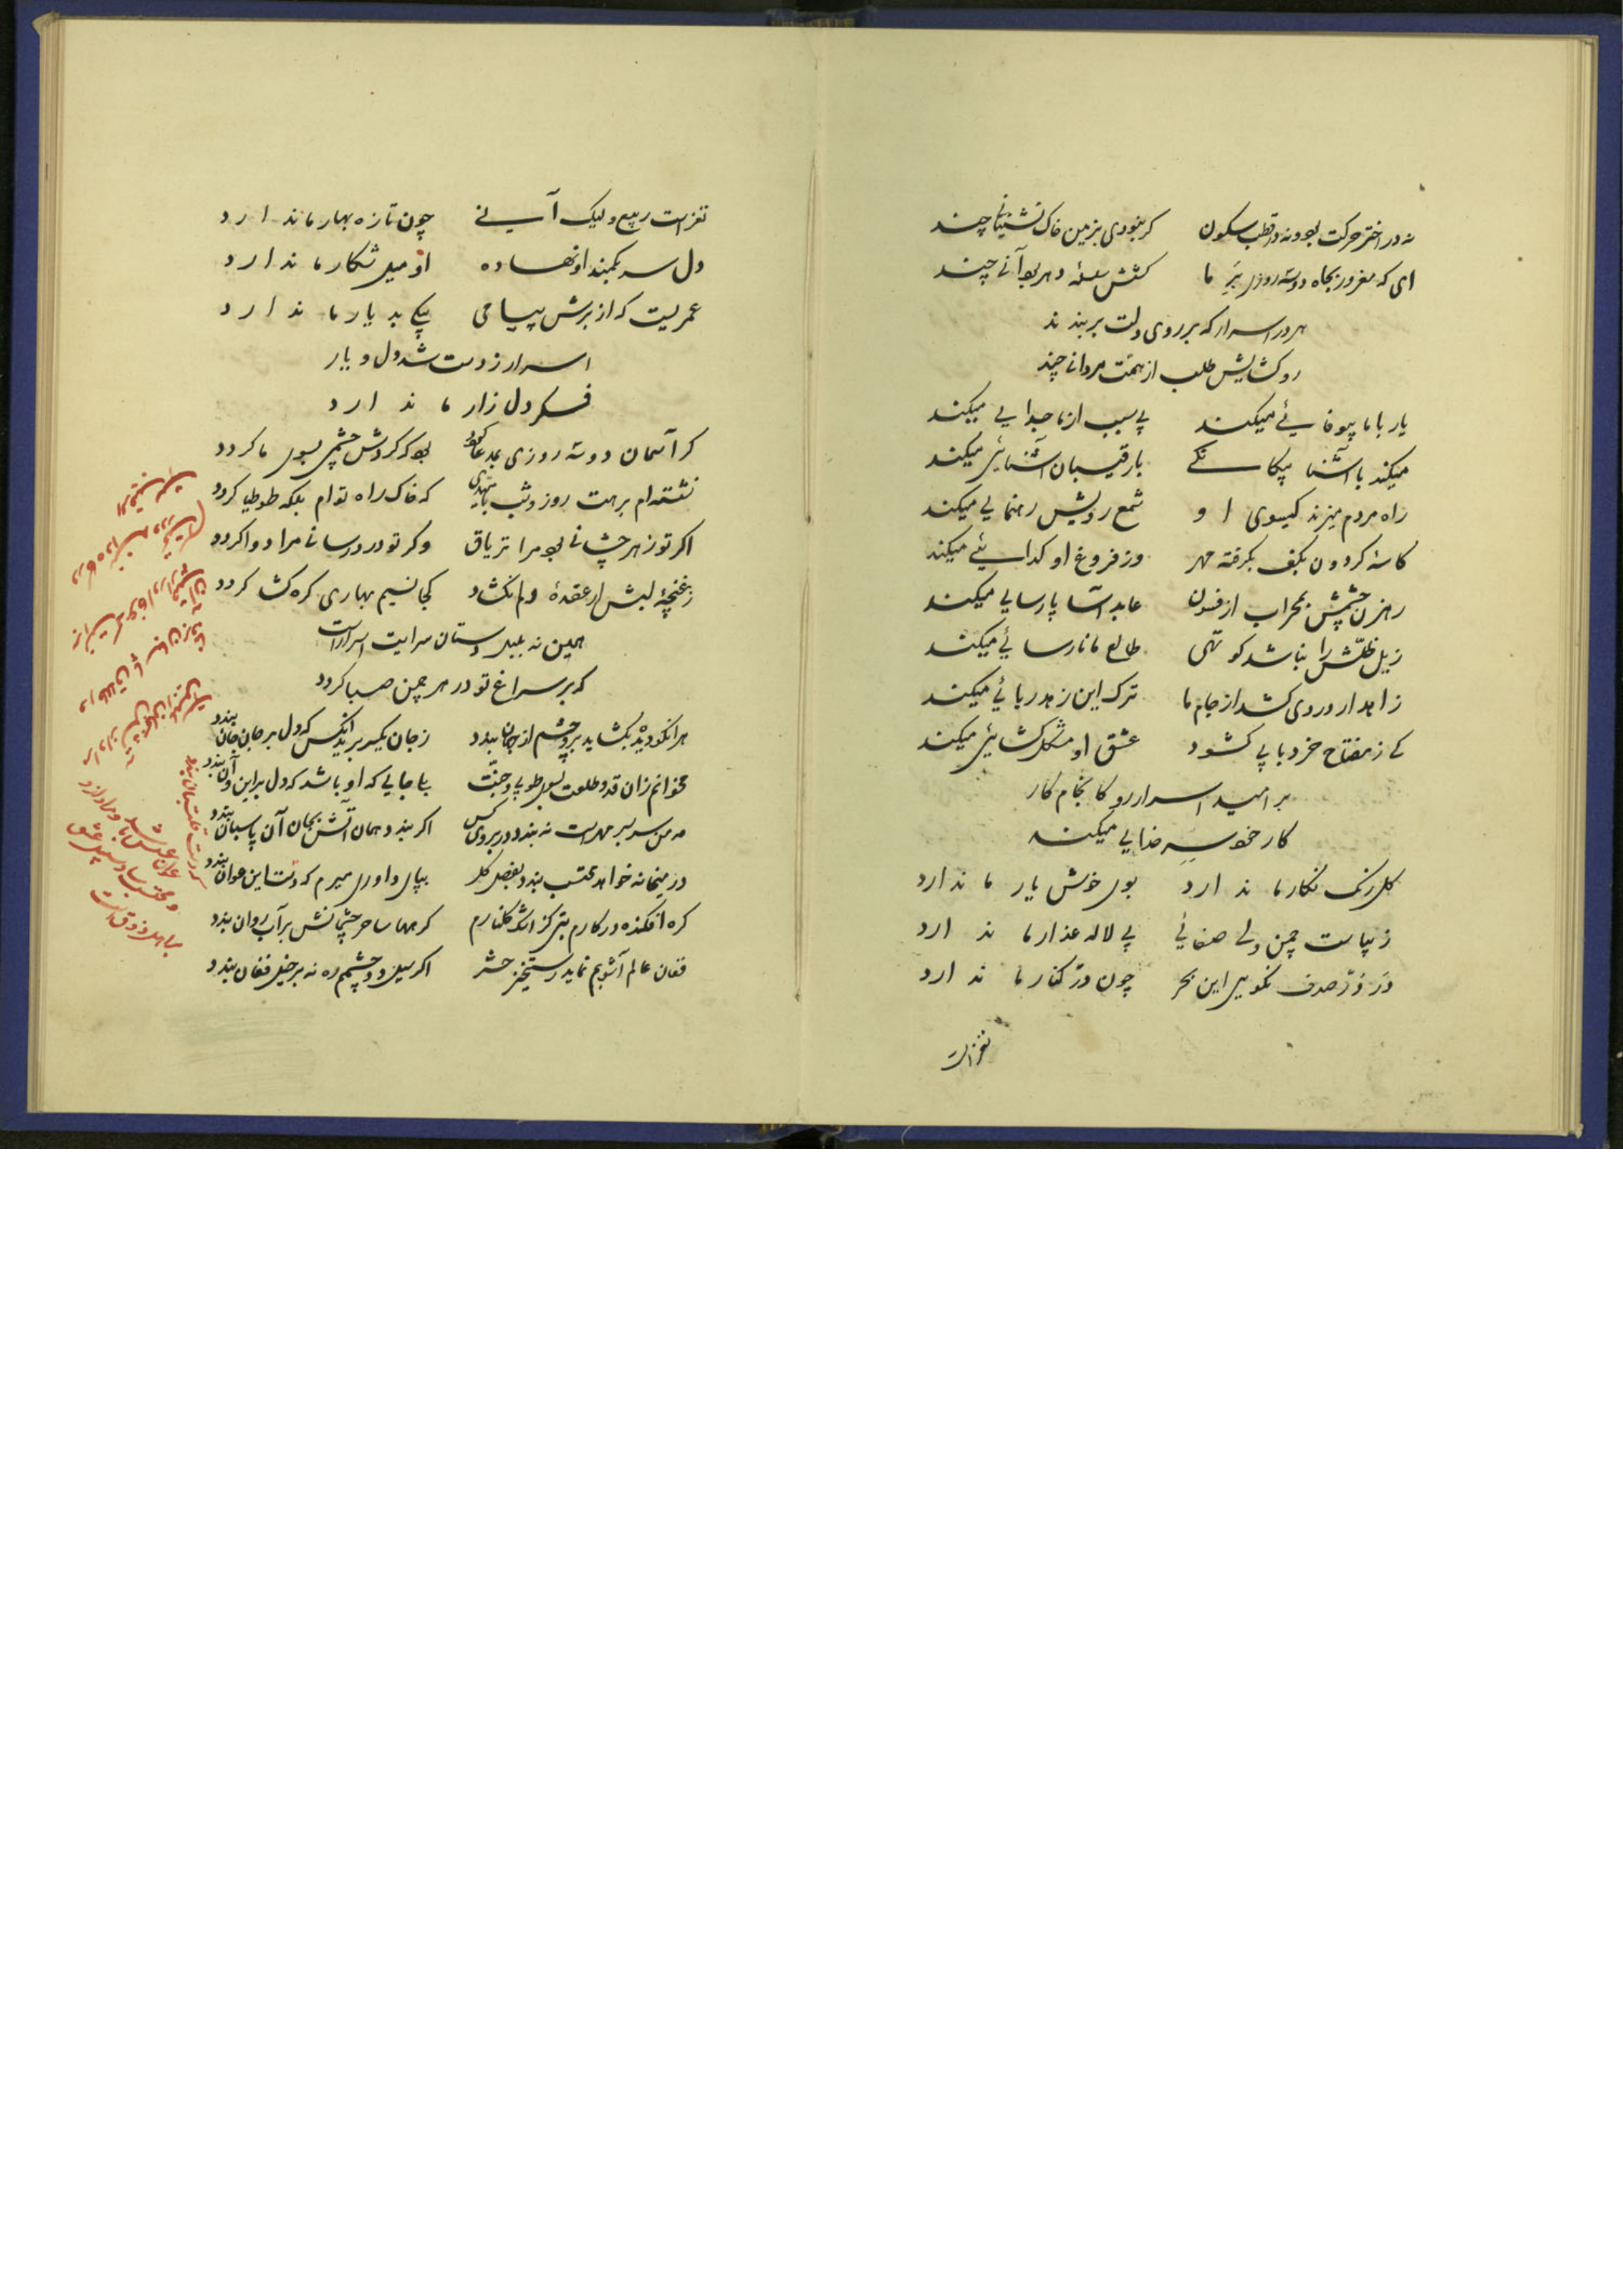 نه در اختر حرکت بود و نه در قطب سکون گر نبودی بزمین خاک نشینانی چند
ای که مغرور بجاه دو سه روزی بر ما کشش سلسله دهر بود آنی چند
هر در اسرار که بر روی دلت بربندند
رو کشایش طلب از همت مردانی چند
یار با ما بیوفائی میکند بی سبب از ما جدایی میکند
میکند با آشنا بیکانکی با رقیبان آشنائی میکند
راه مردم میزند کیسوی او شمع رویش رهنمایی میکند
کاسه کردون بکف بکرفته مهر وز فروغ او کدائی میکند
رهزن چشمش بمحراب از فسون عابد آسا پارسایی میکند
ذیل ظلش را نباشد کوتهی طالع ما نارسائی میکند
زاهد ار دردی کشد از جام ما ترک این زهد ریائی میکند
کی ز مفتاح خرد بابی کشود عشق او مشکل کشائی میکند
بر امید اسرار رو کانجام کار
کار خود سر خدایی میکند
کل رنک نکار ما ندارد بوی خوش یار ما ندارد
زیباست چمن ولی صفائی بی لاله عذار ما ندارد
در در صدف نکویی این بحر چون در کنار ما ندارد
نغز است
نغز است ربیع ولیک آنی چون تازه بهار ما ندارد
دل سر بکمند او نهاده او میل شکار ما ندارد
عمریست که از برش پیامی پیکی بدیار ما ندارد
اسرار ز دست شد دل و یار
فکر دل زار ما ندارد
کر آسمان دو سه روزی بمدعا کردد بود که کردش چشمی بسوی ما کردد
نشسته ام برهت روز و شب بامیدی که خاک راه توام بلکه طوطیا کردد
اکر تو زهر چشانی بود مرا تریاق وکر تو درد رسانی مرا دوا کردد
ز غنچه لبش ار عقده دلم نکشاد کجا نسیم بهاری کره کشا کردد
همین نه بلبل دستان سرایت اسرار است
که بر سراغ تو در هر چمن صبا کردد
هر آنکو دیده بکشاید برو چشم از جهان بندد ز جان یکسر برید آنکس که دل بر جان جان بندد
نخوانم زان قد و طلعت بسوی طوبی و جنت بیا جایی که او باشد که دل بر این و آن بندد
مه من سر بسر مهر است نه بندد در بروی کس اکر بندد همان آتش بجان آن پاسبان بندد
در میخانه خواهد محتسب بندد بفصل کل بپای داوری میرم که دست این عوان بندد
کره افکنده در کارم بتی کز اشک کلنارم کر مها ساحر چشمانش بر آب روان بندد
فغان عالم آشوبم نماید رستخیز حشر اکر سیل دو چشمم ره نه بر خیل فغان بندد